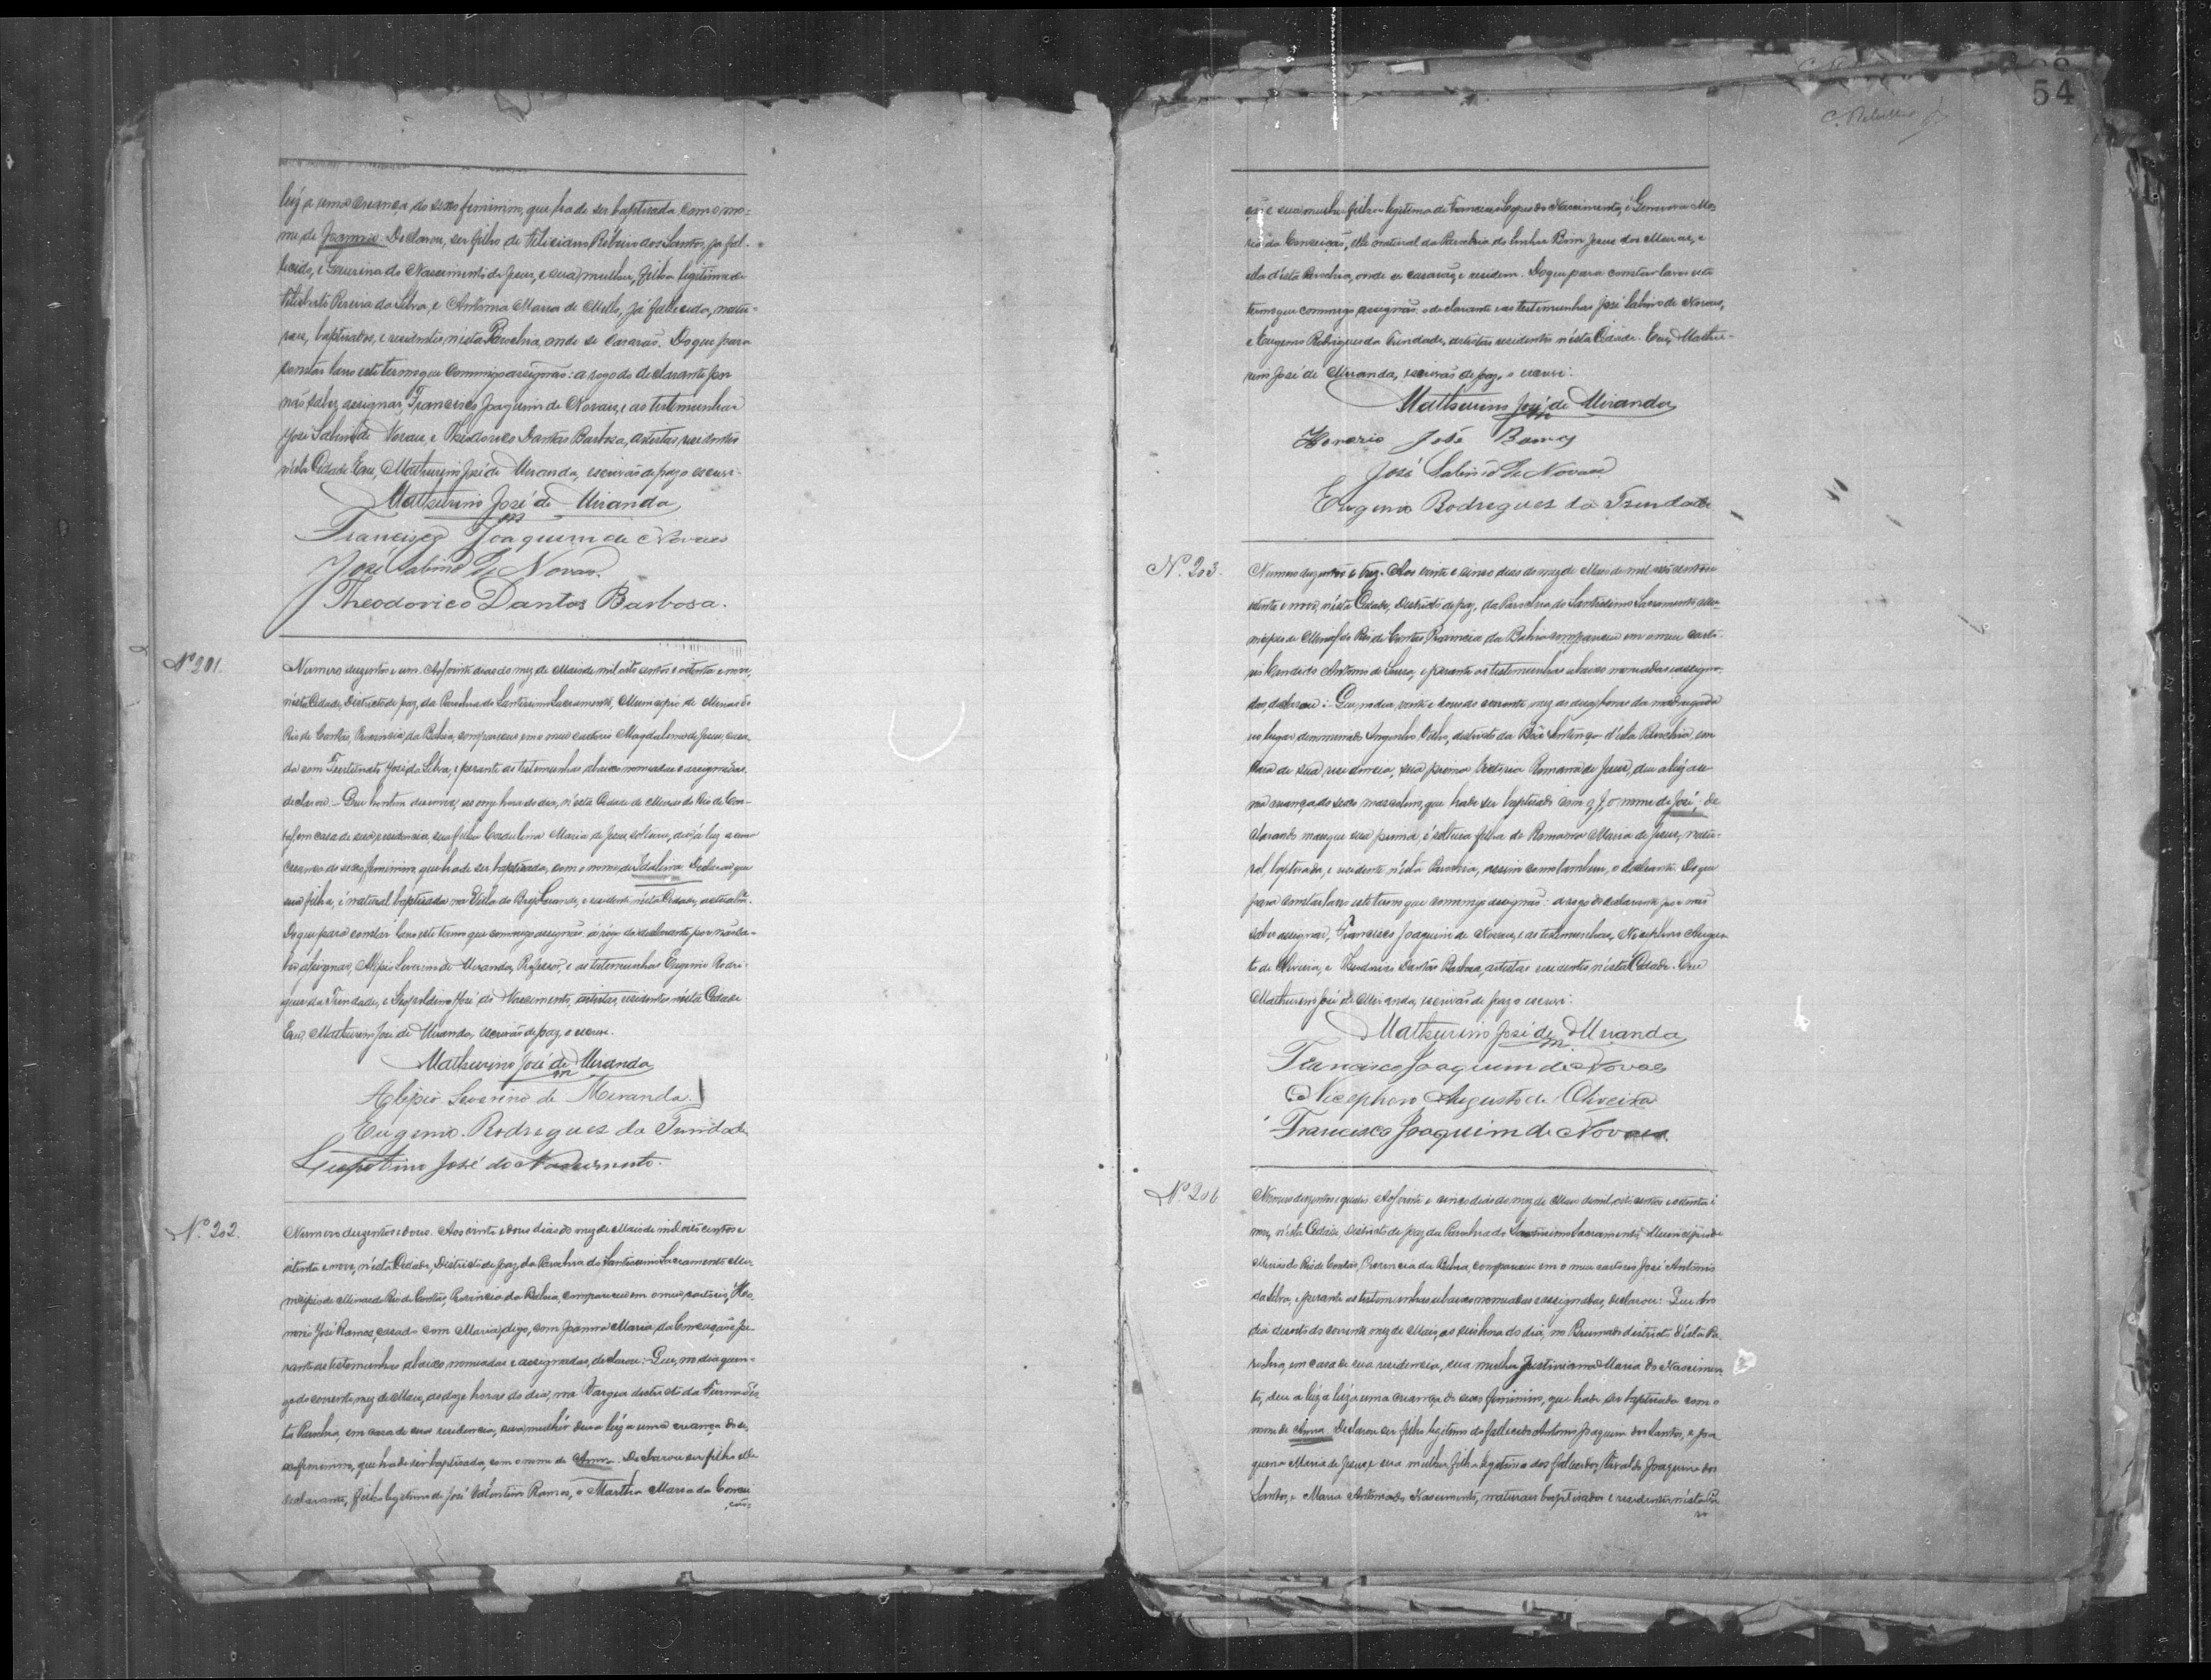 luz a uma creança do sexo feminino, que ha de ser baptisada com o no-
me de Joanna. Declarou, ser filho de Feliciano Ribeiro dos Santos, já fal-
lecido, e Severina do Nascimento de Jesus, e sua mulher, filha legitima de
Pereira da Silva, e Antonia Maria de Mello, já fallecida, natu-
raes, baptisados, e residentes n'esta Parochia, onde se casarão. Do que para
constar lavro este termo que commigo assignão: a rogo do declarante por
não saber assignar, Francisco Joaquim de Novaes, e as testemunhas
José Sabino de Novaes, e Theodorico Dantas Barbosa, artistas residentes
n'esta Cidade. Eu, Mathurino José de Miranda, escrivão de paz o escrevi.
Mathurino José de Miranda
Francisco Joaquim de Novaes
José Sabino de Novaes.
Theodorico Dantas Barbosa.
Nº 201.
Numero duzentos e um. Aos vinte dias do mez de Maio de mil oito centos e oitenta e nove,
n'esta Cidade, Districto de paz, da Parochia do Santissimo Sacramento, Municipio de Minas do
Rio de Contas, Provincia da Bahia, compareceu em o meu cartorio Magdalena de Jesus, casa-
da com Fortunato José da Silva, e perante as testemunhas abaixo nomeadas e assignadas,
declarou: Que hontem dezenove, as onze horas do dia, n'esta Cidade de Minas do Rio de Con-
tas, em casa de sua residencia, sua filha Maria de Jesus, solteira, deu á luz a uma
creança do sexo feminino, que ha de ser baptisada, com o nome de Idalina. Declarou que
sua filha, é natural baptisada na Villa do Brejo Grande, e residente n'esta Cidade,
Do que para constar lavro este termo que commigo assignão: a rogo da declarante por não sa-
ber assignar, Aglepio Severino de Miranda, Professor, e as testemunhas Eugenio Rodri-
gues da Trindade, e Leopoldino José do Nascimento, artistas, residentes n'esta Cidade
Eu, Mathurino José de Miranda, escrivão de paz, o escrevi.
Mathurino José de Miranda
Aglepio Severino de Miranda.
Eugenio Rodrigues da Trindade
José do Nascimento.
Nº 202.
Numero duzentos e dous. Aos vinte e dous dias do mez de Maio de mil oito centos e
oitenta e nove, n'esta Cidade, Districto de paz, da Parochia do Santissimo Sacramento Mu-
nicipio de Minas do Rio de Contas, Provincia da Bahia, compareceu em o meu cartorio, Ho-
norio José Ramos, casado com Maria, digo, com Joanna Maria da Conceição e pe-
rante as testemunhas abaixo nomeadas e assignadas, declarou: Que, no dia quin-
ze do corrente mez de Maio, as doze horas do dia, na Vargea districto da Furna d'es-
ta Parochia, em casa de sua residencia, sua mulher deu a luz a uma creança do se-
xo feminino, que ha de ser baptisada, com o nome de Anna. Declarou ser filho elle
declarante, filho legitimo de José Valentim Ramos, e Martha Maria da Concei-
ção
54
ção e sua mulher filha legitima de Francisco do Nascimento, e Ma-
ria da Conceição, elle natural da Parochia do Senhor Bom Jesus dos e
ella d'esta Parochia, onde se casarão, e residem. Do que para constar lavro este
termo que commigo assignão: o declarante e as testemunhas José Sabino de Novaes,
e Eugenio Rodrigues da Trindade, artistas residentes n'esta Cidade. Eu, Mathu-
rino José de Miranda, escrivão de paz, o escrevi.
Mathurino José de Miranda
Honorio José Ramos
José Sabino de Novaes
Eugenio Rodregues da Trindade
Nº 203.
Numero duzentos e trez. Aos vinte e cinco dias do mez de Maio de mil oito centos e
oitenta e nove, n'esta Cidade, Districto de paz, da Parochia do Santissimo Sacramento Mu-
nicipio de Minas do Rio de Contas, Provincia da Bahia compareceu em o meu carto-
rio Candido Antonio de Souza, e perante as testemunhas abaixo nomeadas e assigna-
das, declarou: Que, no dia vinte e dous do corrente mez as duas horas da madrugada
no lugar denominado Engenho Velho, districto da Bôa Sentença d'esta Parochia, em
casa de sua residencia, sua prima Victoria Romana de Jesus, deu a luz a u-
ma creança do sexo masculino, que ha de ser baptisado com o nome de José; De-
clarando mais que sua prima, é solteira filha de Romana Maria de Jesus, natu-
ral, baptisada, e residente n'esta Parochia, assim como tambem, o declarante. Do que
para constar lavro este termo que commigo assignão: a rogo do declarante por não
saber assignar, Francisco Joaquim de Novaes, e as testemunhas, Nicephoro Augus-
to de Oliveira, e Theodorico Dantas Barbosa, artistas residentes n'esta Cidade. Eu
Mathurino José de Miranda, escrivão de paz o escrevi.
Mathurino José de Miranda
Francisco Joaquim de Novaes
Nicephoro Augusto de Oliveira
Francisco Joaquim de Novaes.
Nº 204
Numero duzentos e quatro. Aos vinte e cinco dias do mez de Maio de mil oito centos e oitenta e
nove, n'esta Cidade, Districto de paz da Parochia do Santissimo Sacramento, Municipio de
Minas do Rio de Contas, Provincia da Bahia, compareceu em o meu cartorio José Antonio
da Silva, e perante as testemunhas abaixo nomeadas e assignadas, declarou: Que no
dia dezoito do corrente mez de Maio, as seis horas do dia, no Brumado districto d'esta Pa-
rochia, em casa de sua residencia, sua mulher Justiniana Maria do Nascimen-
to, deu a luz a luz a uma creança do sexo feminino, que ha de ser baptisada com o
nome de Anna. Declarou ser filho legitimo do fallecido Antonio Joaquim dos Santos, e Joa-
quina Maria de Jesus, e sua mulher, filha legitima dos fallecidos Joaquim dos
Santos, e Maria Antonia do Nascimento, naturaes baptisados e residentes n'esta Pa-